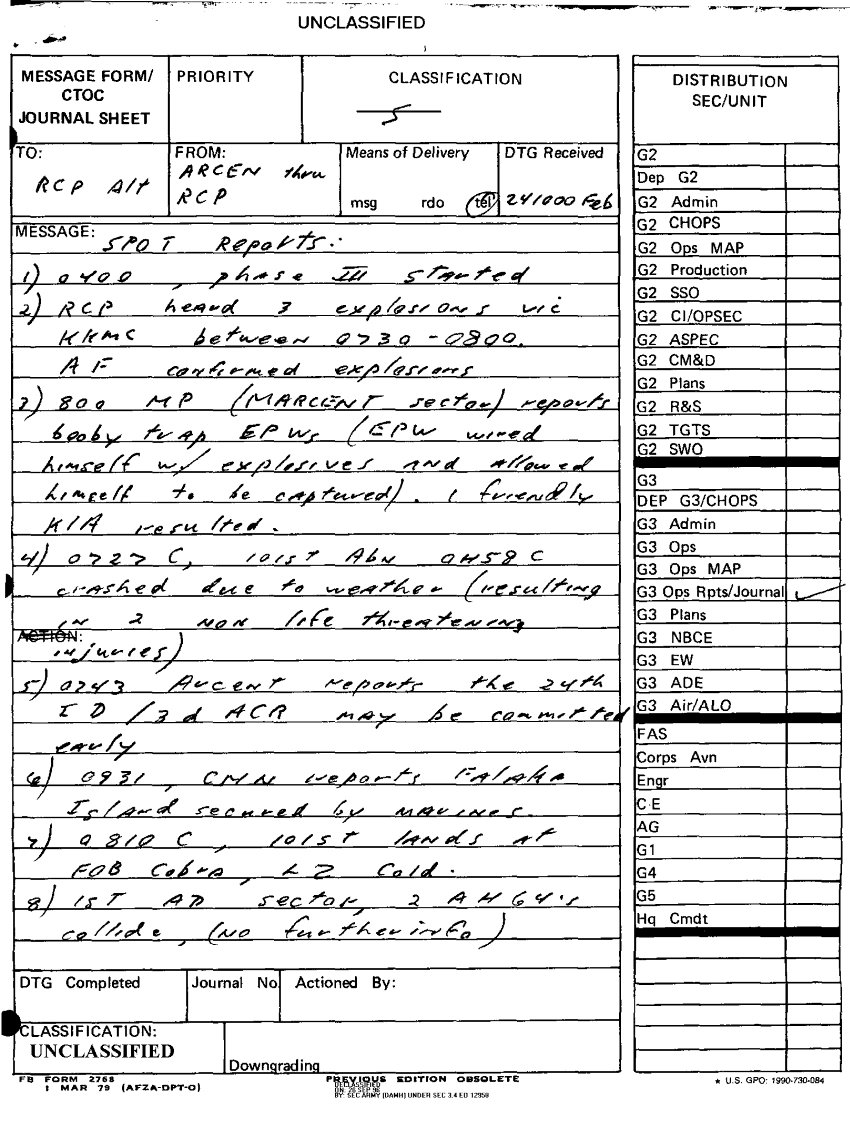 UNCLASSIFIED
MESSAGE FORM/
CTOC
JOURNAL SHEET
PRIORITY
CLASSIFICATION
S
TO:
RCP Alt
FROM:
ARCEN thru
RCP
Means of Delivery
msg rdo tel
DTG Received
241000 Feb
MESSAGE:
SPOT Reports:
1) 0400 , phase III started
2) RCP heard 3 explosions vic
KKMC between 0730-0800.
AF confirmed explosions
3) 800 MP (MARCENT sector) reports
booby trap EPWs (EPW wired
himself w/ explosives and allowed
himself to be captured). 1 friendly
KIA resulted.
4) 0727 C, 101st Abn OH58C
crashed due to weather (resulting
in 2 non life threatening
ACTION:
injuries)
5) 0243 Arcent reports the 24th
ID /3d ACR may be committed
early
6) 0931, CMN reports Falaka
Island secured by marines.
7) 0810 C, 101st lands at
FOB Cobra, LZ Cold.
8) 1st AD sector, 2 AH64's
collide, (no further info)
DTG Completed
Journal No.
Actioned By:
CLASSIFICATION:
UNCLASSIFIED
Downgrading
FB FORM 2768
1 MAR 79 (AFZA-DPT-O)
PREVIOUS EDITION OBSOLETE
DECLASSIFIED
ON: 26 SEP 96
BY: SEC ARMY (DAMH) UNDER SEC 3.4 EO 12958
★ U.S. GPO: 1990-730-084
DISTRIBUTION
SEC/UNIT
G2
Dep G2
G2 Admin
G2 CHOPS
G2 Ops MAP
G2 Production
G2 SSO
G2 CI/OPSEC
G2 ASPEC
G2 CM&D
G2 Plans
G2 R&S
G2 TGTS
G2 SWO
G3
DEP G3/CHOPS
G3 Admin
G3 Ops
G3 Ops MAP
G3 Ops Rpts/Journal ✓
G3 Plans
G3 NBCE
G3 EW
G3 ADE
G3 Air/ALO
FAS
Corps Avn
Engr
C E
AG
G1
G4
G5
Hq Cmdt